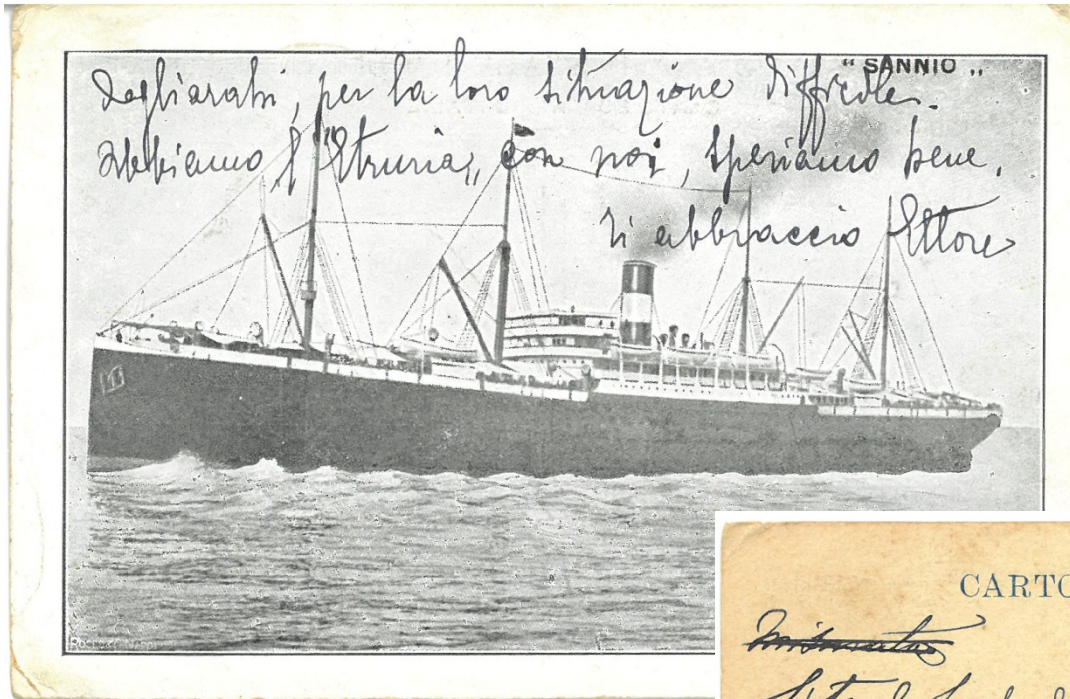 " SANNIO „
degli arabi, per la loro situazione difficile.
abbiamo l'"Etruria„ con noi, speriamo bene.
Ti abbraccio Ettore
CARTO